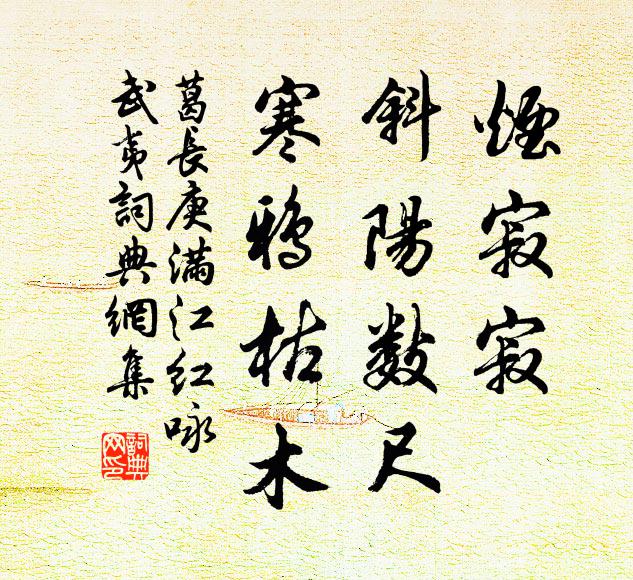 煙寂寂
斜陽數尺
寒鴉枯木
葛長庚滿江紅咏
武夷詞典網集
詞典網印